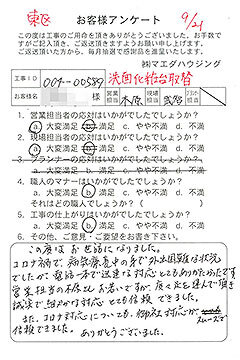 東区
お客様アンケート
9/21
この度は工事のご用命を頂きありがとうございました。お手数で
すがご記入頂き、ご返送頂きますようお願い申し上げます。
ご返送頂いた方から、毎月抽選で感謝品を進呈いたします。
㈱マエダハウジング
工事ID
009-00589
洗面化粧台取替
営業担当
現場担当
1. 営業担当者の応対はいかがでしたでしょうか?
a. 大変満足 b. 満足 c. やや不満 d. 不満
2. 現場担当者の応対はいかがでしたでしょうか?
a. 大変満足 b. 満足 c. やや不満 d. 不満
3. プランナーの応対はいかがでしたでしょうか?
a. 大変満足 b. 満足 c. やや不満 d. 不満
4. 職人のマナーはいかがでしたでしょうか?
a. 大変満足 b. 満足 c. やや不満 d. 不満
それはどの職人でしょうか? (
5. 工事の仕上がりはいかがでしたでしょうか?
a. 大変満足 b. 満足 c. やや不満 d. 不満
6. その他、ご意見・ご要望をお書き下さい。
この度は お世話になりました。
コロナ禍で、病気療養中の身で外出困難な状況
でしたが、電話一本で迅速な対応 とてもありがたかったです
誠実で細やかな対応 とても信頼 できました。
また、コロナ対応についても、御社の対応が
スムーズで
信頼できました。
ありがとうございました。